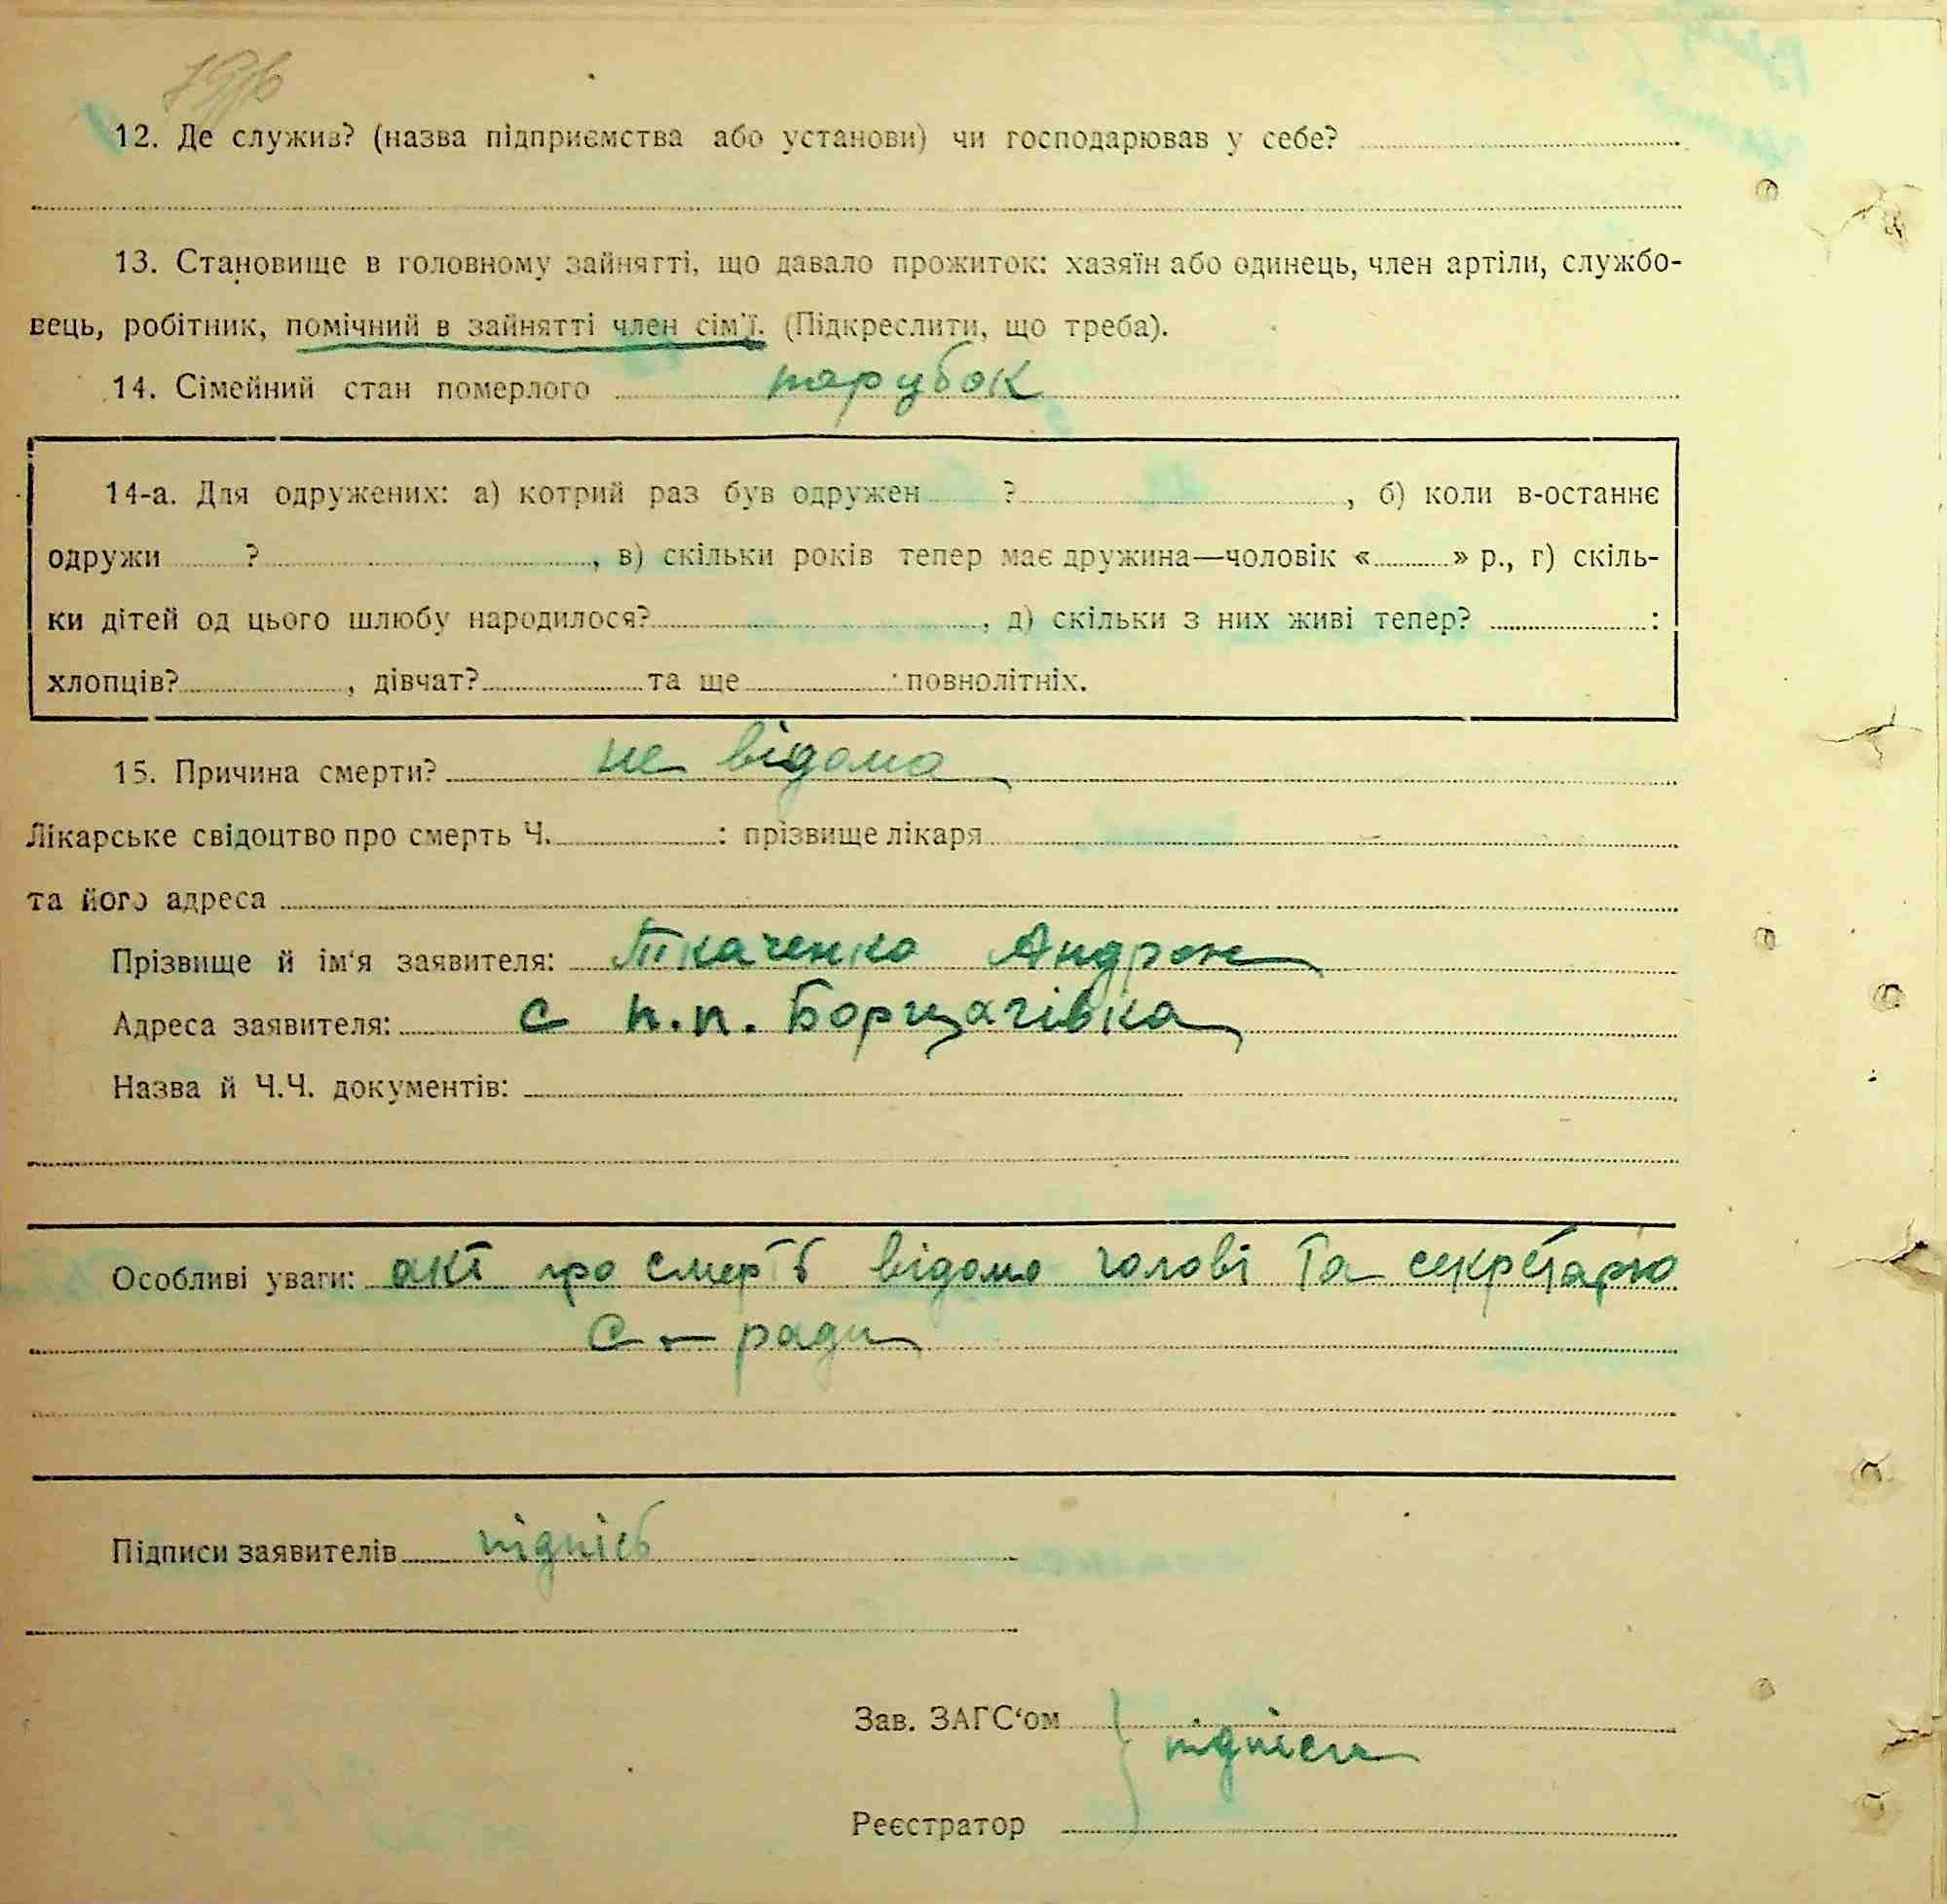 12. Де служив? (назва підприємства або установи) чи господарював у себе?
13. Становище в головному зайнятті, що давало прожиток: хазяїн або одинець, член артіли, службо-
вець, робітник, помічний в зайнятті член сім'ї. (Підкреслити, що треба).
14. Сімейний стан померлого парубок
14-а. Для одружених: а) котрий раз був одружен ? , б) коли в-останнє
одружи ? , в) скільки років тепер має дружина—чоловік « » р., г) скіль-
ки дітей од цього шлюбу народилося? , д) скільки з них живі тепер? :
хлопців? , дівчат? та ще : повнолітніх.
15. Причина смерти? не відома
Лікарське свідоцтво про смерть Ч. : прізвище лікаря
та його адреса
Прізвище й ім'я заявителя: Ткаченко Андрон
Адреса заявителя: с п.п. Борщагівка
Назва й Ч.Ч. документів:
Особливі уваги: акт про смерть відомо голові та секретарю
с-ради
Підписи заявителів підпісь
Зав. ЗАГС'ом
підписи
Реєстратор